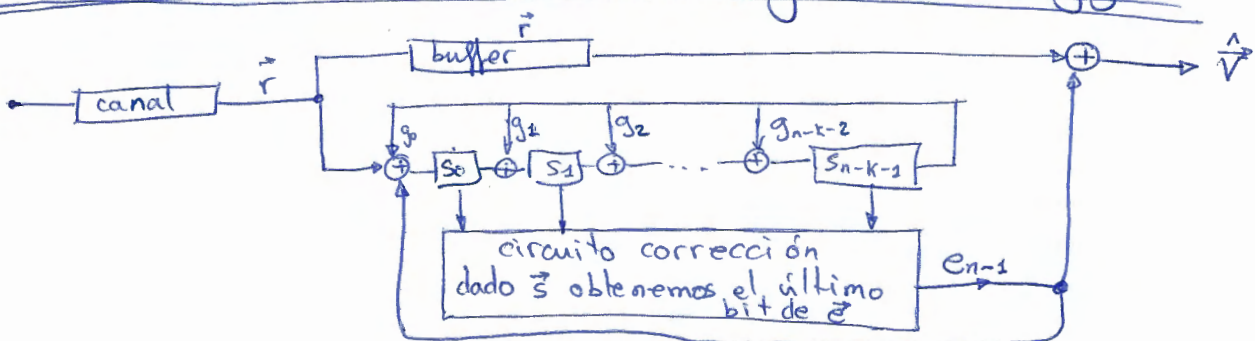 r⃗
buffer
V̂⃗
canal
r⃗
g₀
g₁
g₂
gₙ₋ₖ₋₂
S₀
S₁
. . . .
Sₙ₋ₖ₋₁
circuito corrección
dado s⃗ obtenemos el último
bit de e⃗
eₙ₋₁